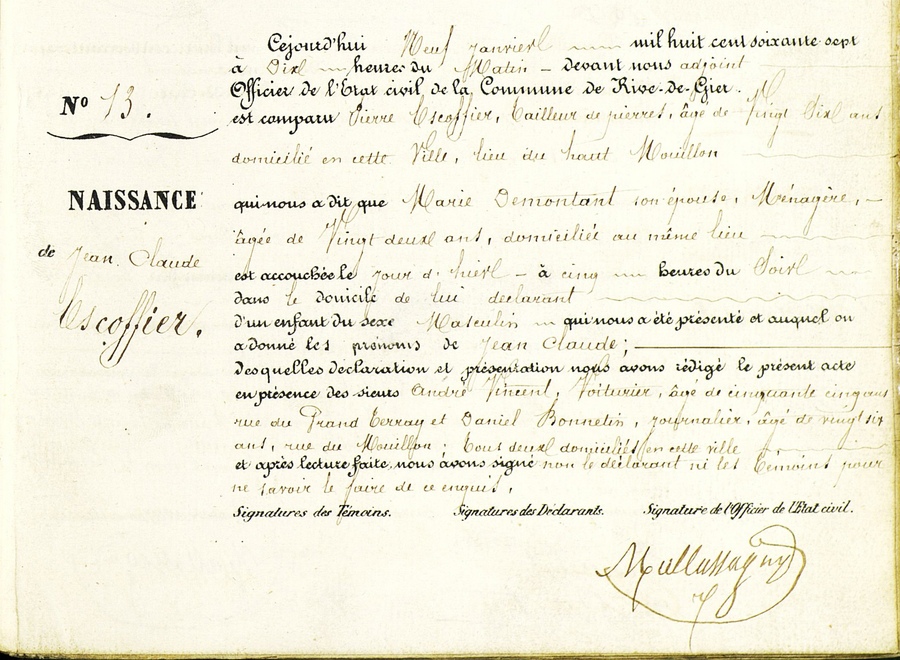 Cejourd'hui Neuf Janvier mil huit cent soixante sept
à Dix heures du Matin - devant nous adjoint
Officier de l'Etat civil de la Commune de Rive-de-Gier.
Nº 13.
est comparu Pierre Escoffier, tailleur de pierres, âgé de Vingt Six ans
domicilié en cette Ville, lieu du haut Mouillon
NAISSANCE
qui nous a dit que Marie Demontant son épouse, Ménagère, -
âgée de Vingt deux ans, domiciliée au même lieu
de Jean Claude
Escoffier.
est accouchée le jour d'hier - à cinq heures du Soir
dans le domicile de lui déclarant
d'un enfant du sexe Masculin qui nous a été présenté et auquel on
a donné les prénoms de Jean Claude;
Desquelles déclaration et présentation nous avons rédigé le présent acte
en présence des sieurs André Vincent, Voiturier, âgé de cinquante cinq ans
rue du Grand Terray et Daniel Bonnetin, Journalier, âgé de vingt six
ans, rue du Mouillon; tous deux domiciliés en cette ville
et après lecture faite, nous avons signé non le déclarant ni les témoins pour
ne savoir le faire de ce enquis.
Signatures des Témoins. Signatures des Déclarants. Signature de l'Officier de l'Etat civil.